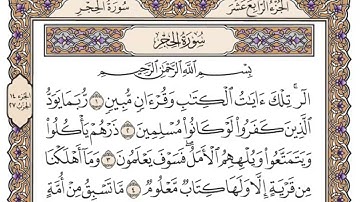 الجزء الرابع عشر
سورة الحجر
سُورَةُ الْحِجْرِ
بِسْمِ اللَّهِ الرَّحْمَٰنِ الرَّحِيمِ
الٓر ۚ تِلْكَ ءَايَٰتُ الْكِتَٰبِ وَقُرْءَانٍ مُّبِينٍ ١ رُّبَمَا يَوَدُّ
الَّذِينَ كَفَرُوا لَوْ كَانُوا مُسْلِمِينَ ٢ ذَرْهُمْ يَأْكُلُوا
وَيَتَمَتَّعُوا وَيُلْهِهِمُ الْأَمَلُ ۖ فَسَوْفَ يَعْلَمُونَ ٣ وَمَا أَهْلَكْنَا
مِن قَرْيَةٍ إِلَّا وَلَهَا كِتَابٌ مَّعْلُومٌ ٤ مَّا تَسْبِقُ مِنْ أُمَّةٍ
الجزء ١٤
الحزب ٢٧